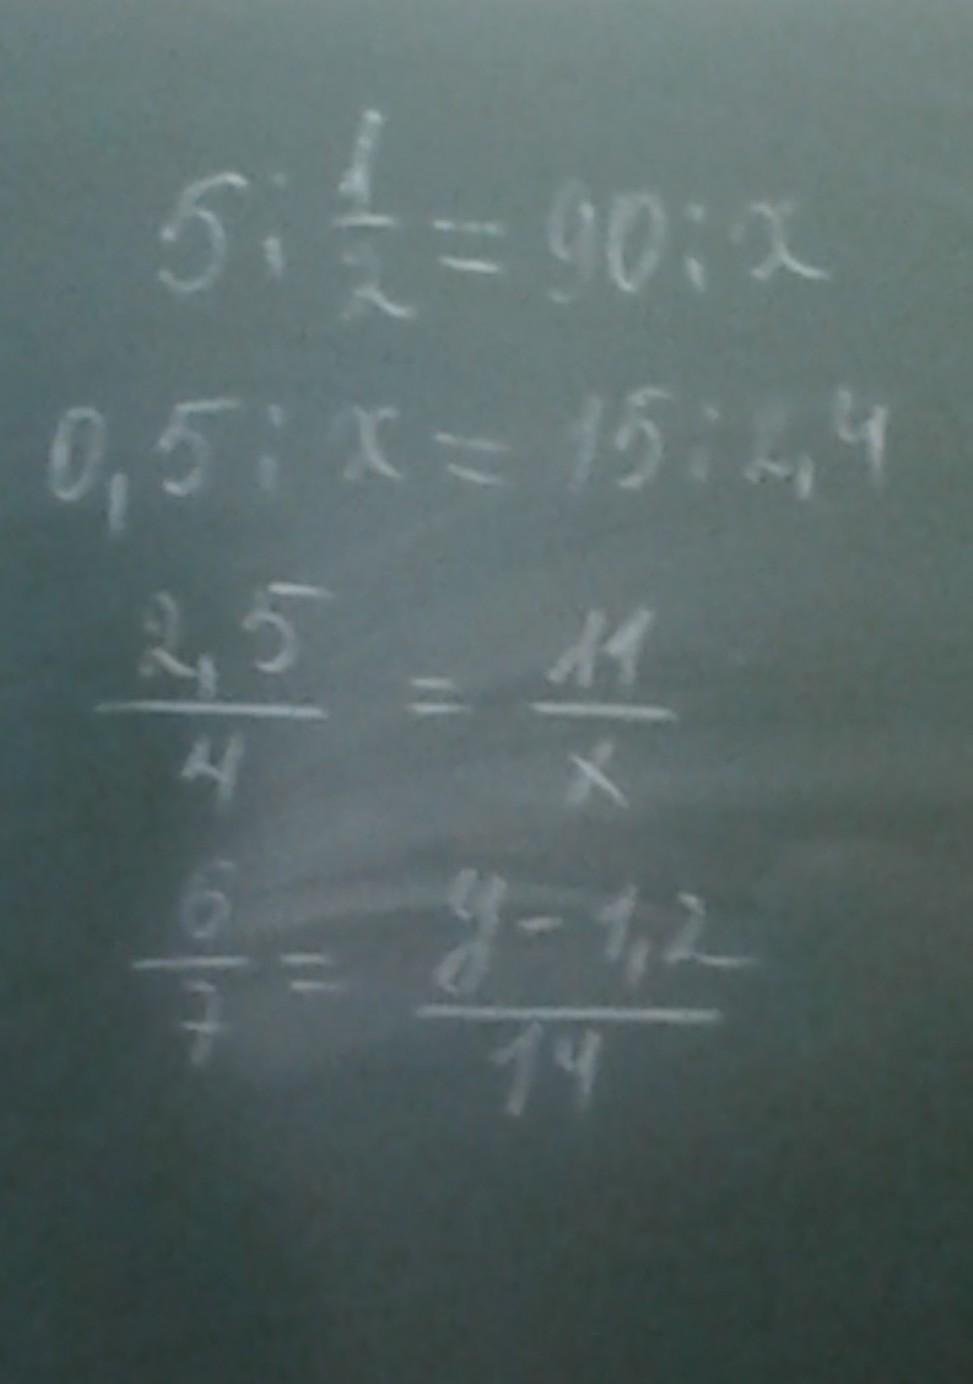 5 : 1/2 = 90 : x
0,5 : x = 15 : 2,4
2,5/4 = 11/x
6/7 = y - 1,2/14